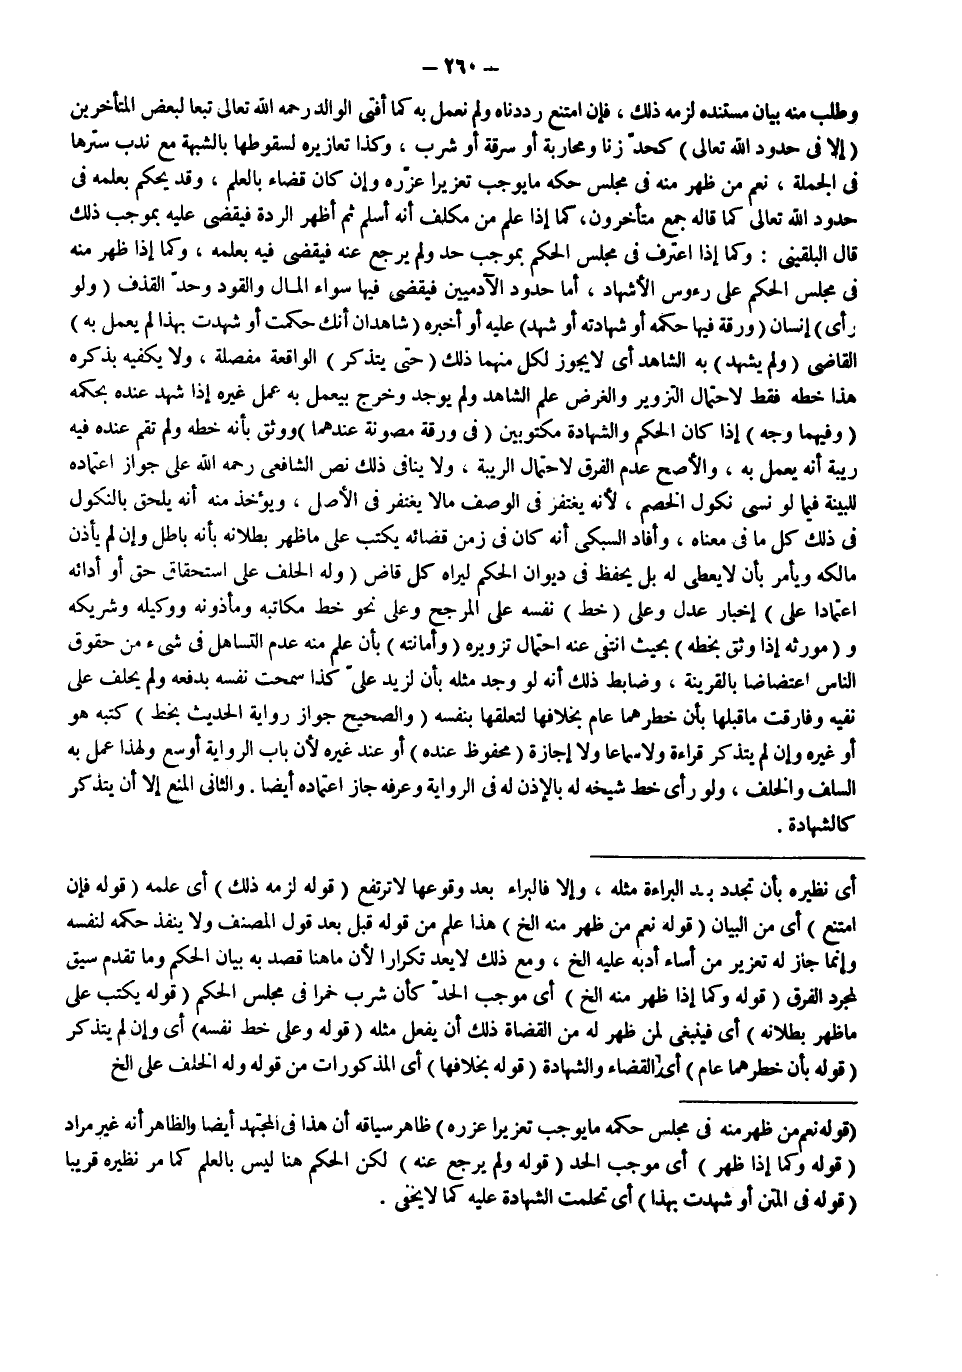 - ٢٦٠ -
وطلب منه بيان مستنده لزمه ذلك ، فإن امتنع رددناه ولم نعمل به كما أفتى الوالد رحمه الله تعالى تبعا لبعض المتأخرين
( إلا فى حدود الله تعالى ) كحدّ زنا ومحاربة أو سرقة أو شرب ، وكذا تعازيره لسقوطها بالشبهة مع ندب سترها
فى الجملة ، نعم من ظهر منه فى مجلس حكمه مايوجب تعزيرا عزّره وإن كان قضاء بالعلم ، وقد يحكم بعلمه فى
حدود الله تعالى كما قاله جمع متأخرون، كما إذا علم من مكلف أنه أسلم ثم أظهر الردة فيقضى عليه بموجب ذلك
قال البلقينى : وكما إذا اعترف فى مجلس الحكم بموجب حد ولم يرجع عنه فيقضى فيه بعلمه ، وكما إذا ظهر منه
فى مجلس الحكم على رءوس الأشهاد ، أما حدود الآدميين فيقضى فيها سواء المال والقود وحدّ القذف ( ولو
رأى ) إنسان ( ورقة فيها حكمه أو شهادته أو شهد ) عليه أو أخبره ( شاهدان أنك حكمت أو شهدت بهذا لم يعمل به )
القاضى ( ولم يشهد ) به الشاهد أى لايجوز لكل منهما ذلك ( حتى يتذكر ) الواقعة مفصلة ، ولا يكفيه بذكره
هذا خطه فقط لاحتمال التزوير والغرض علم الشاهد ولم يوجد وخرج بيعمل به عمل غيره إذا شهد عنده بحكمه
( وفيهما وجه ) إذا كان الحكم والشهادة مكتوبين ( فى ورقة مصونة عندهما ) ووثق بأنه خطه ولم تقم عنده فيه
ريبة أنه يعمل به ، والأصح عدم الفرق لاحتمال الريبة ، ولا ينافى ذلك نص الشافعى رحمه الله على جواز اعتماده
للبينة فيما لو نسى نكول الخصم ، لأنه يغتفر فى الوصف مالا يغتفر فى الأصل ، ويؤخذ منه أنه يلحق بالنكول
فى ذلك كل ما فى معناه ، وأفاد السبكى أنه كان فى زمن قضائه يكتب على ماظهر بطلانه بأنه باطل وإن لم يأذن
مالكه ويأمر بأن لايعطى له بل يحفظ فى ديوان الحكم ليراه كل قاض ( وله الحلف على استحقاق حق أو أدائه
اعتمادا على ) إخبار عدل وعلى ( خط ) نفسه على المرجح وعلى نحو خط مكاتبه ومأذونه ووكيله وشريكه
و ( مورثه إذا وثق بخطه ) بحيث انتفى عنه احتمال تزويره ( وأمانته ) بأن علم منه عدم التساهل فى شىء من حقوق
الناس اعتضاضا بالقرينة ، وضابط ذلك أنه لو وجد مثله بأن لزيد علىّ كذا سمحت نفسه بدفعه ولم يحلف على
نفيه وفارقت ماقبلها بأن خطرهما عام بخلافها لتعلقها بنفسه ( والصحيح جواز رواية الحديث بخط ) كتبه هو
أو غيره وإن لم يتذكر قراءة ولا سماعا ولا إجازة ( محفوظ عنده ) أو عند غيره لأن باب الرواية أوسع ولهذا عمل به
السلف والخلف ، ولو رأى خط شيخه له بالإذن له فى الرواية وعرفه جاز اعتماده أيضا . والثانى المنع إلا أن يتذكر
كالشهادة .
أى نظيره بأن تجدد بـ د البراءة مثله ، وإلا فالبراء بعد وقوعها لاترتفع ( قوله لزمه ذلك ) أى علمه ( قوله فإن
امتنع ) أى من البيان ( قوله نعم من ظهر منه الخ ) هذا علم من قوله قبل بعد قول المصنف ولا ينفذ حكمه لنفسه
وإنما جاز له تعزير من أساء أدبه عليه الخ ، ومع ذلك لايعد تكرارا لأن ماهنا قصد به بيان الحكم وما تقدم سيق
لمجرد الفرق ( قوله وكما إذا ظهر منه الخ ) أى موجب الحدّ كأن شرب خمرا فى مجلس الحكم ( قوله يكتب على
ماظهر بطلانه ) أى فينبغى لمن ظهر له من القضاة ذلك أن يفعل مثله ( قوله وعلى خط نفسه) أى وإن لم يتذكر
( قوله بأن خطرهما عام ) أى القضاء والشهادة ( قوله بخلافها ) أى المذكورات من قوله وله الحلف على الخ
(قوله نعم من ظهر منه فى مجلس حكمه مايوجب تعزيرا عزره ) ظاهر سياقه أن هذا فى المجتهد أيضا والظاهر أنه غير مراد
( قوله وكما إذا ظهر ) أى موجب الحد ( قوله ولم يرجع عنه ) لكن الحكم هنا ليس بالعلم كما مر نظيره قريبا
( قوله فى المتن أو شهدت بهذا ) أى تحلمت الشهادة عليه كما لايخفى .